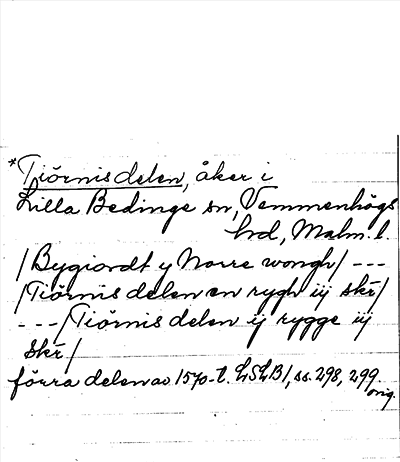 *Tiörnis delen, åker i
Lilla Bedinge sn, Vemmenhögs
hd, Malm. l.
/Bygiordt y Norre wongh/ ---
/Tiörnis delen en rygh iij skr/
---/Tiörnis delen ij rygge iij
skr/
förra delen av 1570-t. LSLB1, ss. 298, 299
orig.